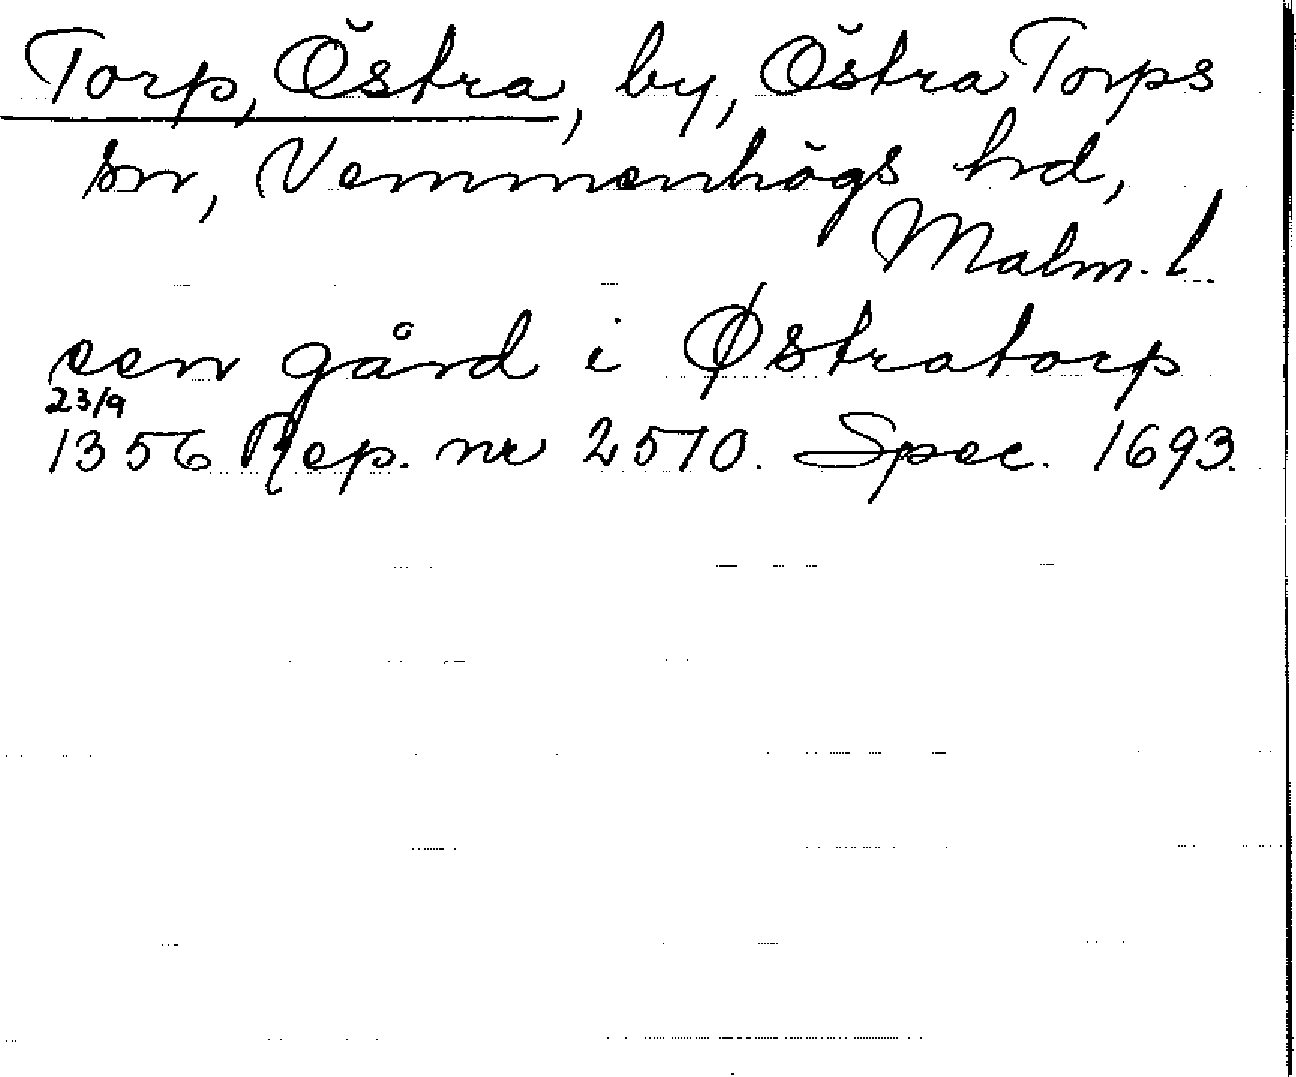 Torp, Östra, by, Östra Torps
sn, Vemmenhögs hd,
Malm. l.
een gård i Østratorp
23/9
1356 Rep. nr 2570. Spec. 1693.